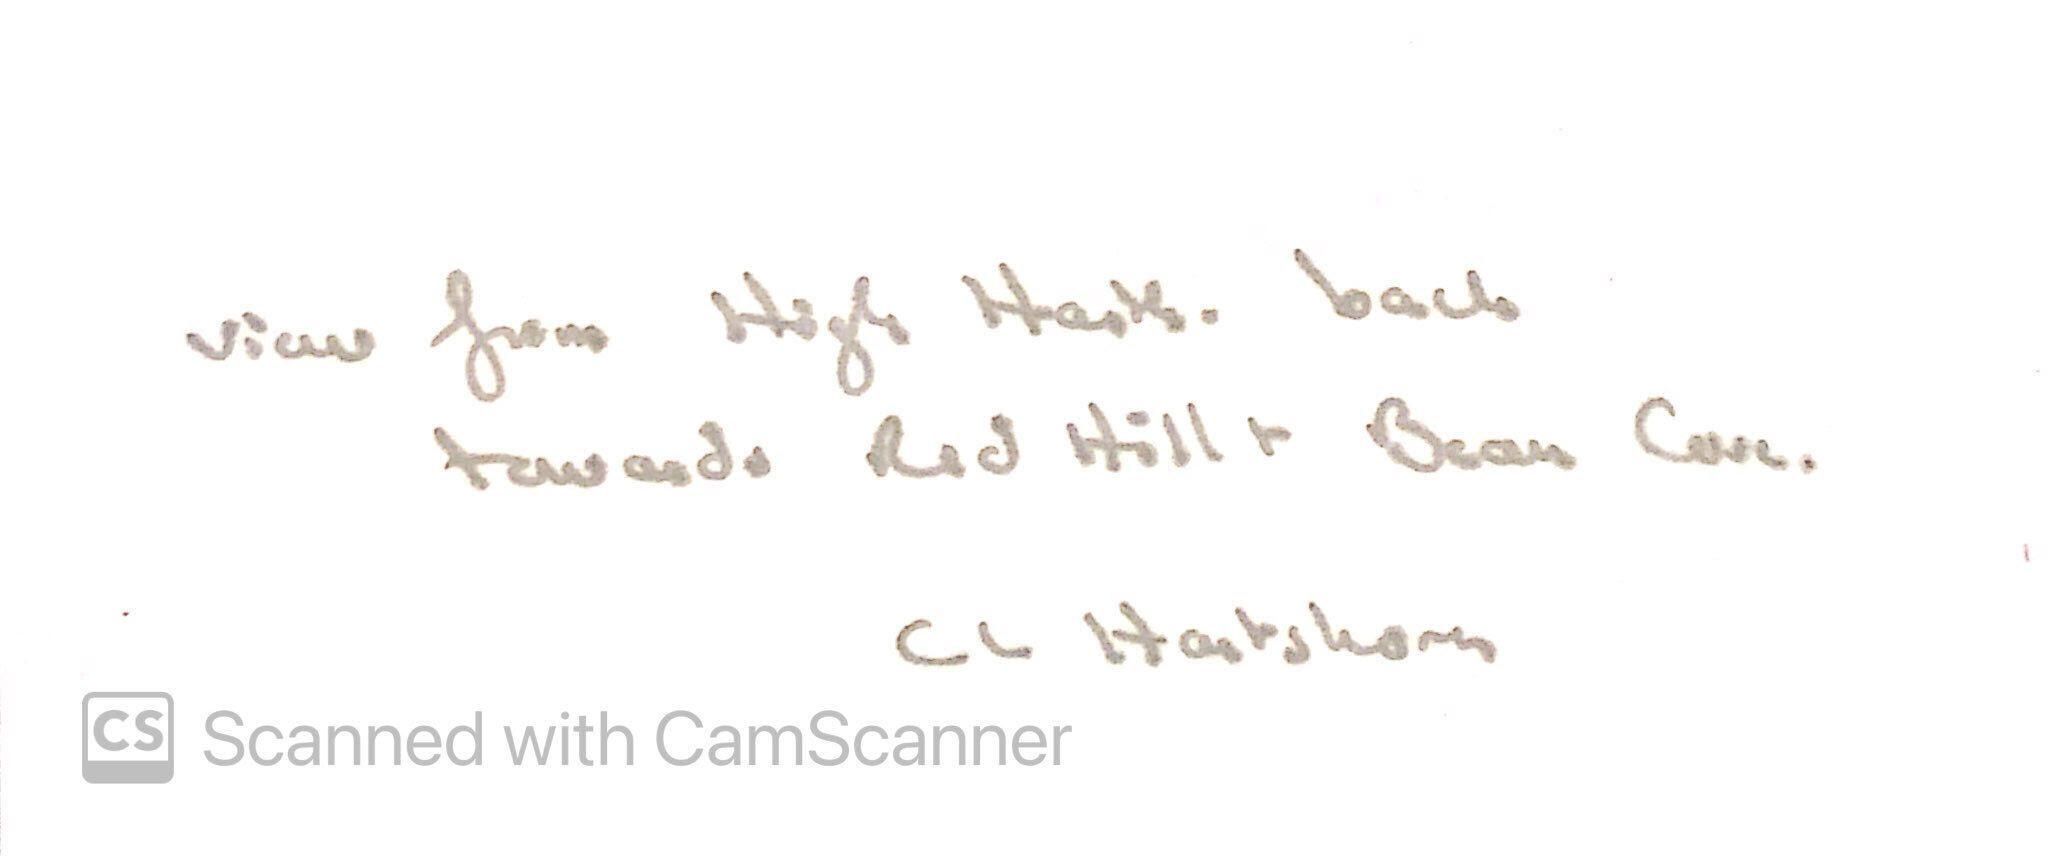 view from High Hartn. back
towards Red Hill + Bean Cove.
CL Hartshorn
CS Scanned with CamScanner